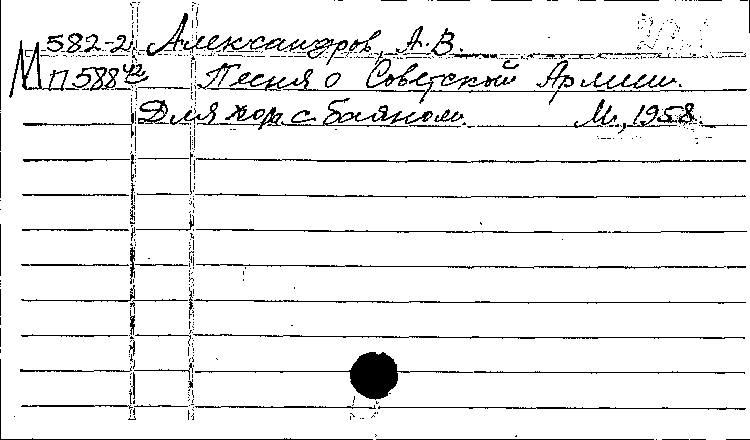 М 582-2 Александров, А.В.
П588 Песня о Советской Армии.
Для хора с баяном. М., 1958.